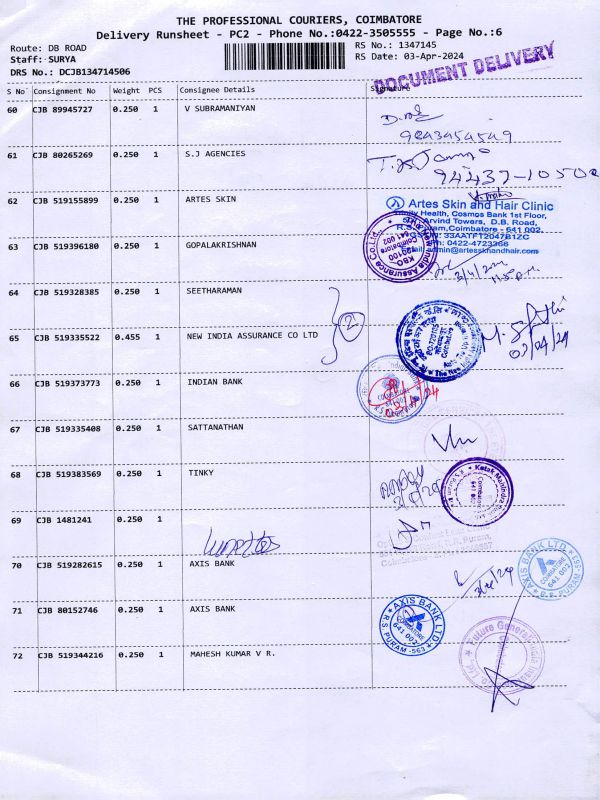 THE PROFESSIONAL COURIERS, COIMBATORE
Delivery Runsheet - PC2 - Phone No.:0422-3505555 - Page No.:6
Route: DB ROAD
RS No.: 1347145
Staff: SURYA
RS Date: 03-Apr-2024
DRS No.: DCJB134714506
DOCUMENT DELIVERY
S No Consignment No Weight PCS Consignee Details Signature
60 CJB 89945727 0.250 1 V SUBRAMANIYAN
61 CJB 80265269 0.250 1 S.J AGENCIES
94437-10502
62 CJB 519155899 0.250 1 ARTES SKIN
Artes Skin and Hair Clinic
Trinity Health, Cosmos Bank 1st Floor,
Arvind Towers, D.B. Road,
R.S.Puram, Coimbatore - 641 002.
Ph: 0422-4723366
63 CJB 519396180 0.250 1 GOPALAKRISHNAN
64 CJB 519328385 0.250 1 SEETHARAMAN
2
65 CJB 519335522 0.455 1 NEW INDIA ASSURANCE CO LTD
03/04/24
66 CJB 519373773 0.250 1 INDIAN BANK
67 CJB 519335408 0.250 1 SATTANATHAN
68 CJB 519383569 0.250 1 TINKY
Kotak Mahindra
69 CJB 1481241 0.250 1
70 CJB 519282615 0.250 1 AXIS BANK
AXIS BANK LTD.
COIMBATORE
641 002
R.S. PURAM
71 CJB 80152746 0.250 1 AXIS BANK
AXIS BANK LTD
COIMBATORE
641 002
R.S PURAM-563
72 CJB 519344216 0.250 1 MAHESH KUMAR V R.
Future Generali India